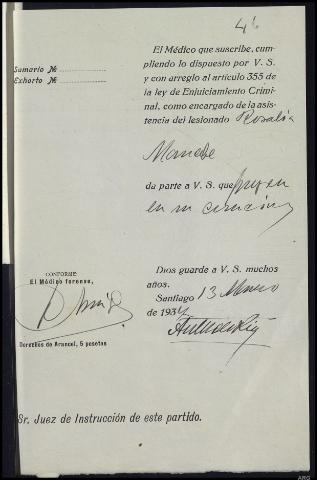 El Médico que suscribe, cum-
pliendo lo dispuesto por V. S.
y con arreglo al artículo 355 de
la ley de Enjuiciamiento Crimi-
nal, como encargado de la asis-
tencia del lesionado Rosalía
da parte a V. S. que
en su curación
Dios guarde a V. S. muchos
años.
Santiago 13
de 193
Sumario №
Exhorto №
CONFORME
El Médico forense,
Derechos de Arancel, 5 pesetas
Sr. Juez de Instrucción de este partido.